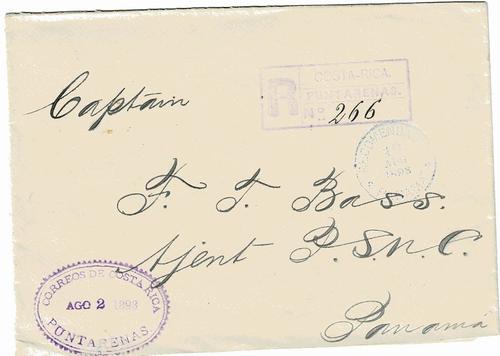 Captain
COSTA-RICA.
R
PUNTARENAS.
No. 266
F. T. Bass.
Ajent P.S.N.C.
Panamá
CORREOS DE COSTA RICA
AGO 2 1898
PUNTARENAS